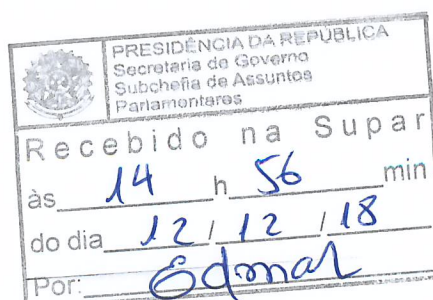 PRESIDÊNCIA DA REPÚBLICA
Secretaria de Governo
Subchefia de Assuntos
Parlamentares
Recebido na Supar
às 14 h 56 min
do dia 12 / 12 / 18
Por: Edmar